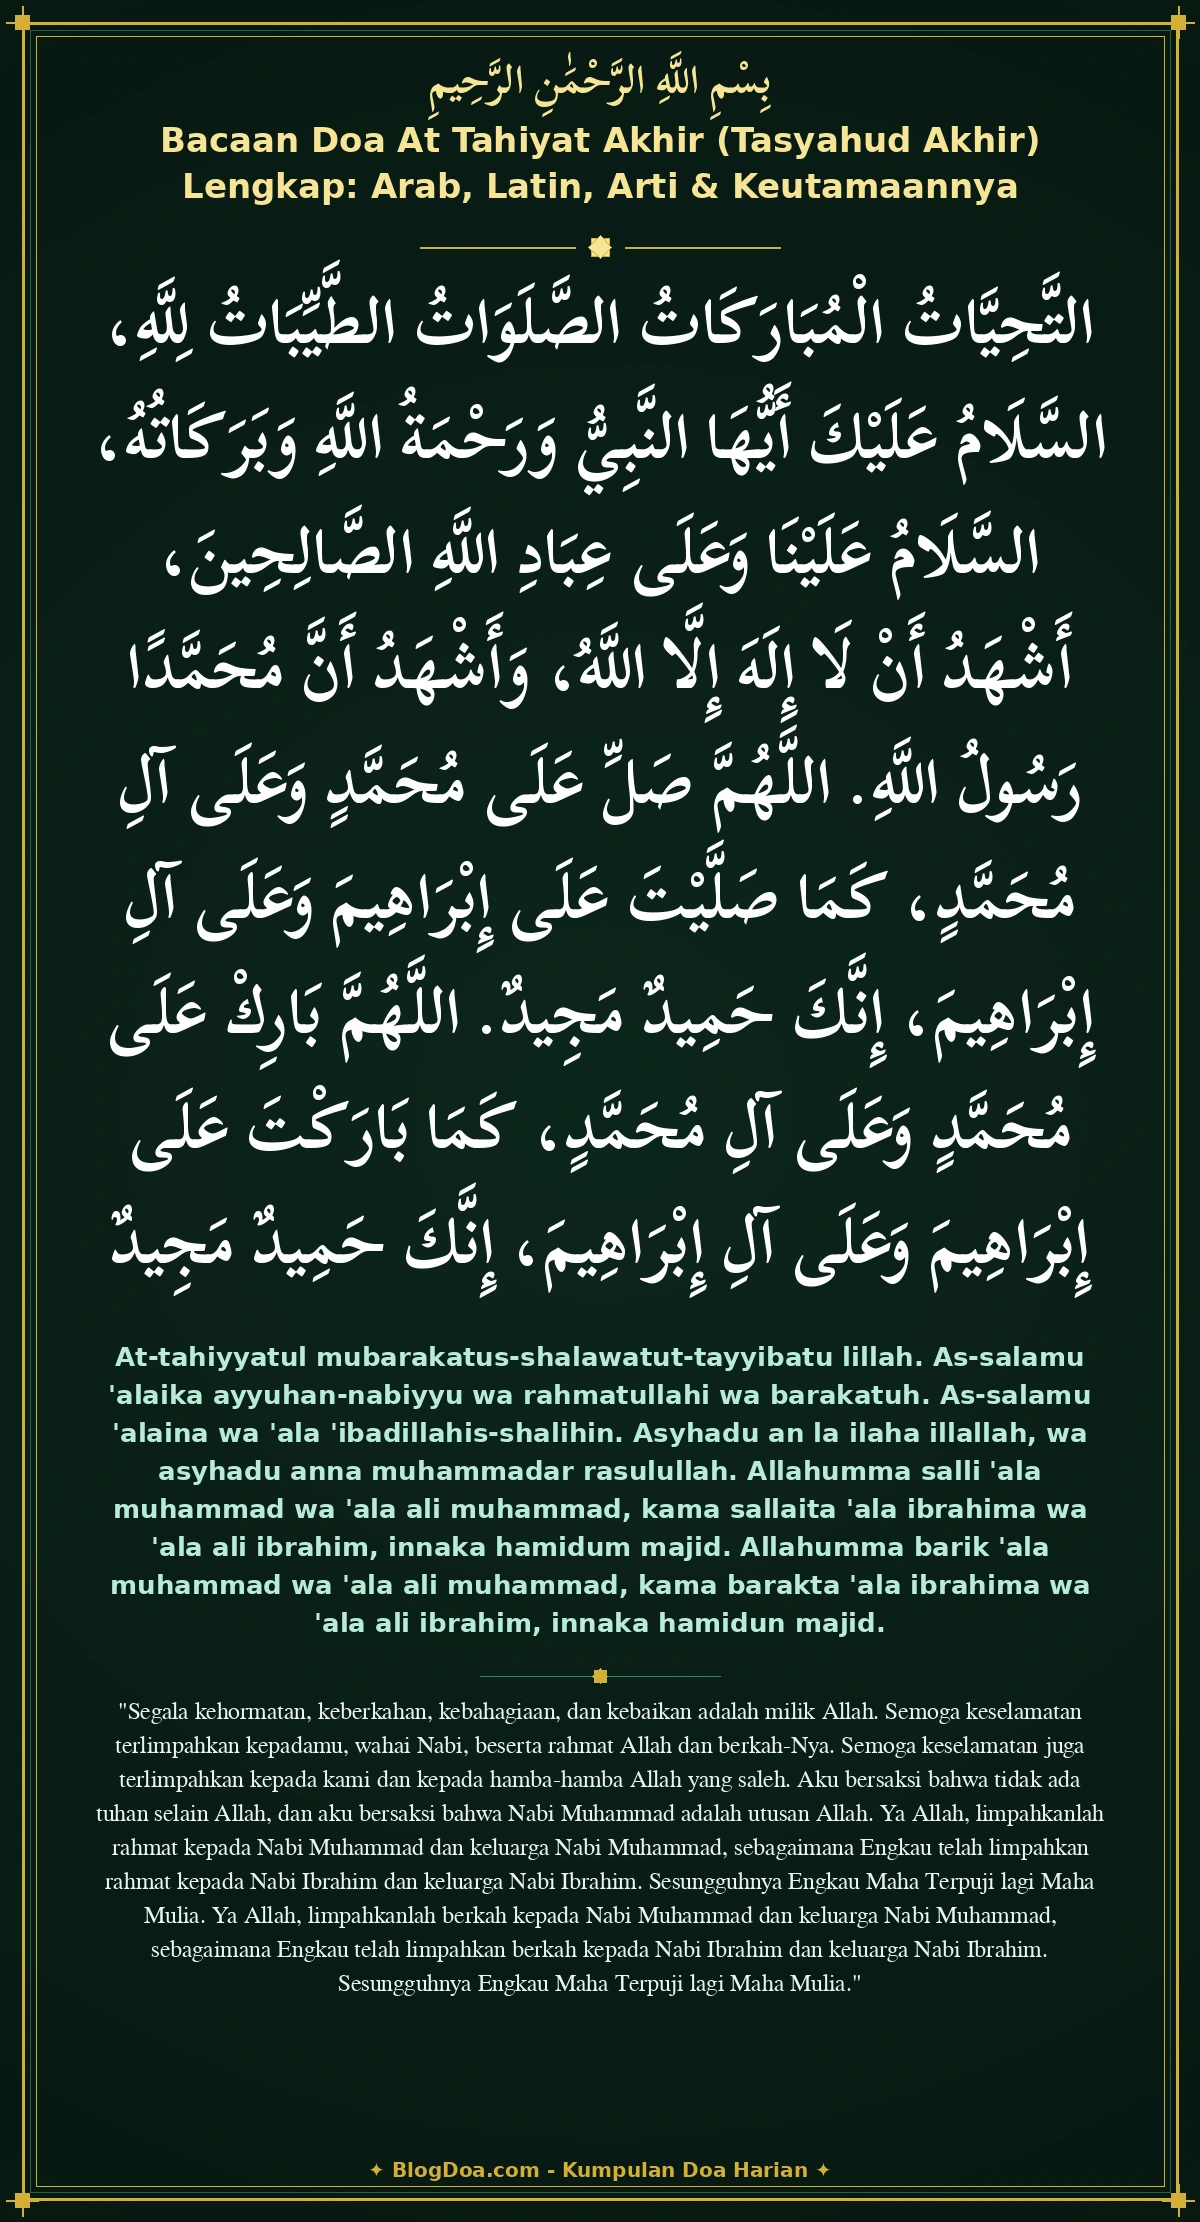 بِسْمِ اللَّهِ الرَّحْمَٰنِ الرَّحِيمِ
Bacaan Doa At Tahiyat Akhir (Tasyahud Akhir)
Lengkap: Arab, Latin, Arti & Keutamaannya
التَّحِيَّاتُ الْمُبَارَكَاتُ الصَّلَوَاتُ الطَّيِّبَاتُ لِلَّهِ،
السَّلَامُ عَلَيْكَ أَيُّهَا النَّبِيُّ وَرَحْمَةُ اللَّهِ وَبَرَكَاتُهُ،
السَّلَامُ عَلَيْنَا وَعَلَى عِبَادِ اللَّهِ الصَّالِحِينَ،
أَشْهَدُ أَنْ لَا إِلَهَ إِلَّا اللَّهُ، وَأَشْهَدُ أَنَّ مُحَمَّدًا
رَسُولُ اللَّهِ. اللَّهُمَّ صَلِّ عَلَى مُحَمَّدٍ وَعَلَى آلِ
مُحَمَّدٍ، كَمَا صَلَّيْتَ عَلَى إِبْرَاهِيمَ وَعَلَى آلِ
إِبْرَاهِيمَ، إِنَّكَ حَمِيدٌ مَجِيدٌ. اللَّهُمَّ بَارِكْ عَلَى
مُحَمَّدٍ وَعَلَى آلِ مُحَمَّدٍ، كَمَا بَارَكْتَ عَلَى
إِبْرَاهِيمَ وَعَلَى آلِ إِبْرَاهِيمَ، إِنَّكَ حَمِيدٌ مَجِيدٌ
At-tahiyyatul mubarakatus-shalawatut-tayyibatu lillah. As-salamu
'alaika ayyuhan-nabiyyu wa rahmatullahi wa barakatuh. As-salamu
'alaina wa 'ala 'ibadillahis-shalihin. Asyhadu an la ilaha illallah, wa
asyhadu anna muhammadar rasulullah. Allahumma salli 'ala
muhammad wa 'ala ali muhammad, kama sallaita 'ala ibrahima wa
'ala ali ibrahim, innaka hamidum majid. Allahumma barik 'ala
muhammad wa 'ala ali muhammad, kama barakta 'ala ibrahima wa
'ala ali ibrahim, innaka hamidun majid.
"Segala kehormatan, keberkahan, kebahagiaan, dan kebaikan adalah milik Allah. Semoga keselamatan
terlimpahkan kepadamu, wahai Nabi, beserta rahmat Allah dan berkah-Nya. Semoga keselamatan juga
terlimpahkan kepada kami dan kepada hamba-hamba Allah yang saleh. Aku bersaksi bahwa tidak ada
tuhan selain Allah, dan aku bersaksi bahwa Nabi Muhammad adalah utusan Allah. Ya Allah, limpahkanlah
rahmat kepada Nabi Muhammad dan keluarga Nabi Muhammad, sebagaimana Engkau telah limpahkan
rahmat kepada Nabi Ibrahim dan keluarga Nabi Ibrahim. Sesungguhnya Engkau Maha Terpuji lagi Maha
Mulia. Ya Allah, limpahkanlah berkah kepada Nabi Muhammad dan keluarga Nabi Muhammad,
sebagaimana Engkau telah limpahkan berkah kepada Nabi Ibrahim dan keluarga Nabi Ibrahim.
Sesungguhnya Engkau Maha Terpuji lagi Maha Mulia."
✦ BlogDoa.com - Kumpulan Doa Harian ✦